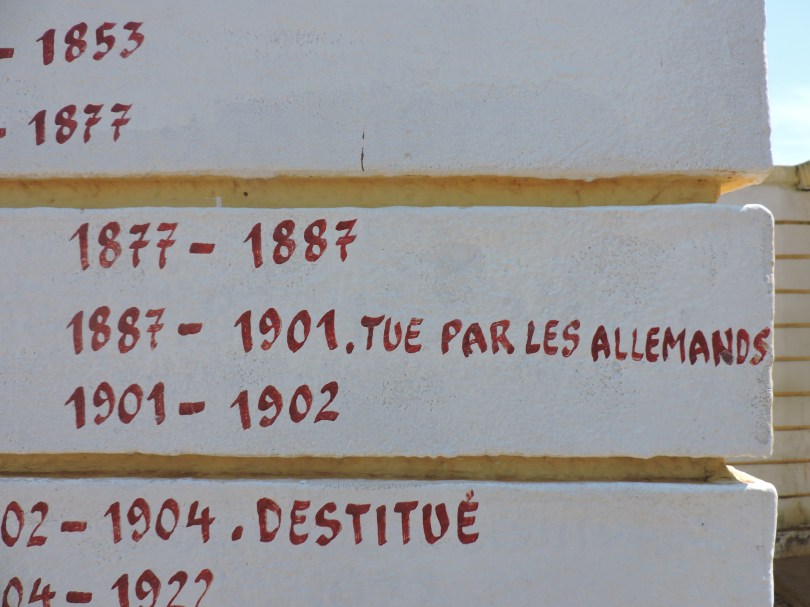 - 1853
- 1877
1877 - 1887
1887 - 1901. TUE PAR LES ALLEMANDS
1901 - 1902
02 - 1904. DESTITUÉ
04 - 1922